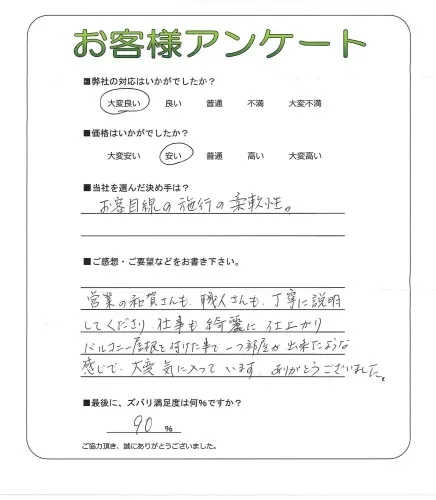 お客様アンケート
■弊社の対応はいかがでしたか？
大変良い 良い 普通 不満 大変不満
■価格はいかがでしたか？
大変安い 安い 普通 高い 大変高い
■当社を選んだ決め手は？
お客目線の施行の柔軟性。
■ご感想・ご要望などをお書き下さい。
営業の和賀さんも、職人さんも、丁寧に説明
してくださり、仕事も綺麗に仕上がり
バルコニー屋根を付けた事で一つ部屋が出来たような
感じで、大変気に入っています。ありがとうございました。
■最後に、ズバリ満足度は何%ですか？
90 %
ご協力頂き、誠にありがとうございました。